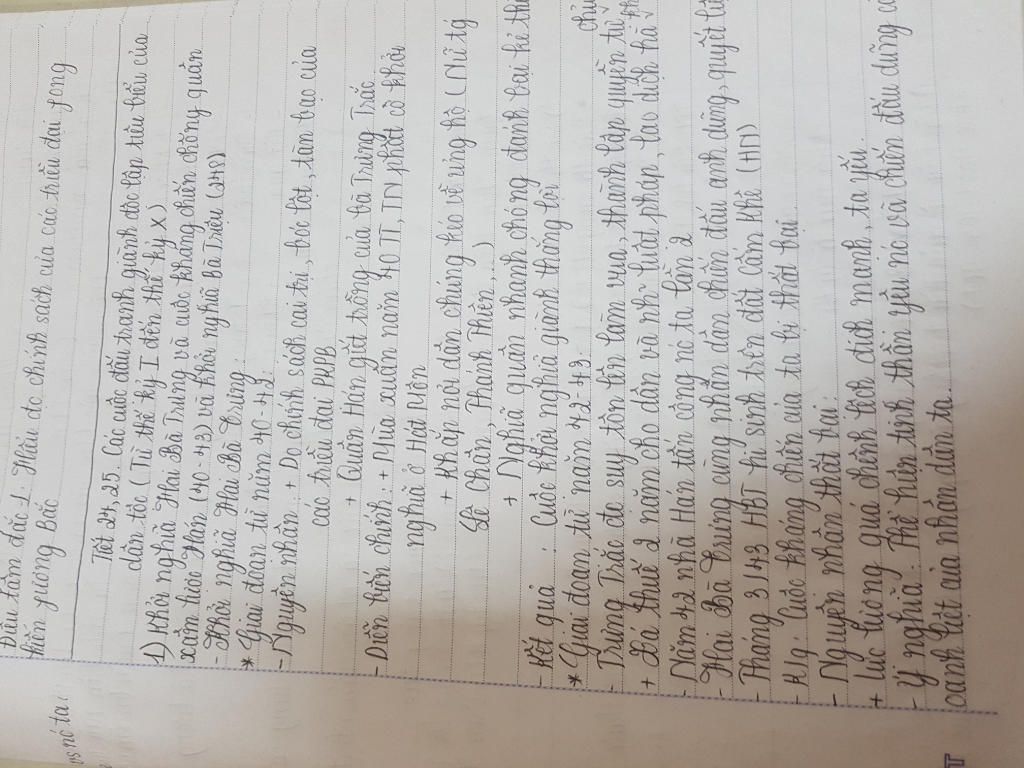 Điều tâm đắc 1: Hiểu đc chính sách của các triều đại pong
kiến phương Bắc
Tiết 24, 25. Các cuộc đấu tranh giành độc lập tiêu biểu của
dân tộc (Từ thế kỷ I đến thế kỷ X)
1) Khởi nghĩa Hai Bà Trưng và cuộc kháng chiến chống quân
xâm lược Hán (40-43) và khởi nghĩa Bà Triệu (248)
- Khởi nghĩa Hai Bà Trưng:
* Giai đoạn từ năm 40-42:
- Nguyên nhân: + Do chính sách cai trị, bóc lột, tàn bạo của
các triều đại PKPB
+ Quân Hán giết chồng của bà Trưng Trắc
- Diễn biến chính: + Mùa xuân năm 40 TT, TN phất cờ khởi
nghĩa ở Hát Môn
+ Khắp nơi dân chúng kéo về ủng hộ (Nữ tg
Lê Chân, Thánh Thiên,...)
+ Nghĩa quân nhanh chóng đánh bại kẻ thù
- Kết quả: Cuộc khởi nghĩa giành thắng lợi
* Giai đoạn từ năm 42-43.
- Trưng Trắc đc suy tôn lên làm vua, thành lập quyền tự chủ
+ Xá thuế 2 năm cho dân và nh~ luật pháp, lao dịch hà
- Năm 42 nhà Hán tấn công nc ta lần 2
- Hai Bà trưng cùng nhân dân chiến đấu anh dũng, quyết liệt
- Tháng 3/43 HBT hi sinh trên đất Cấm Khê (HN)
- KQ: Cuộc kháng chiến của ta bị thất bại
- Nguyên nhân thất bại:
+ Lực lượng quá chênh lệch địch mạnh, ta yếu.
- Ý nghĩa: Thể hiện tinh thần yêu nc và chiến đấu dũng cảm
oanh liệt của nhân dân ta.
nc ta.